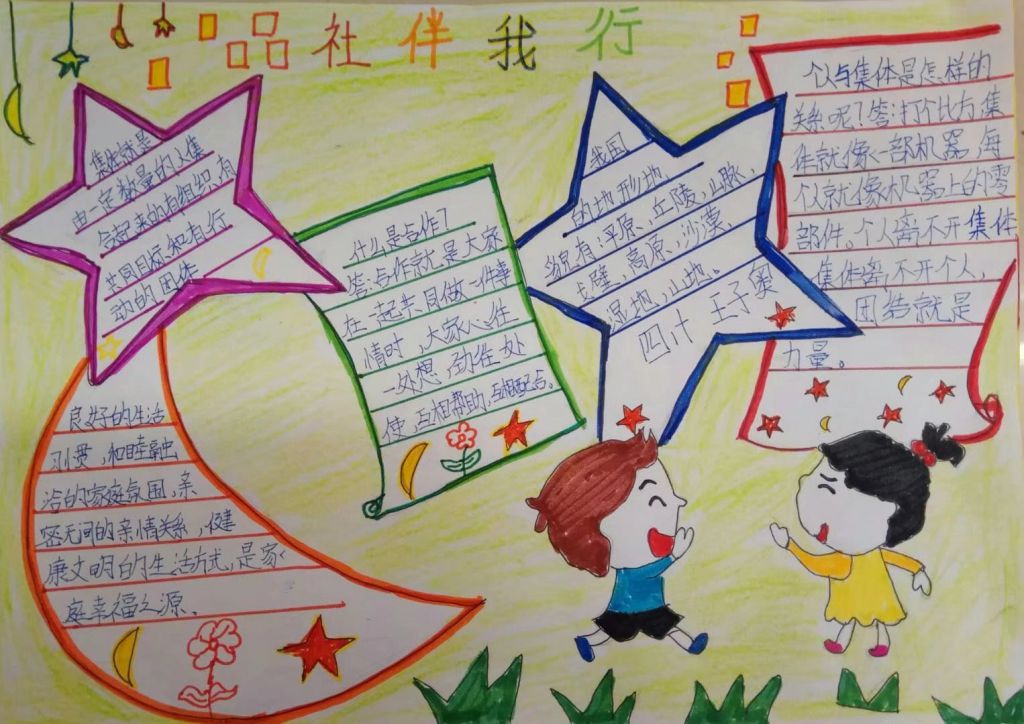 品社伴我行
集体就是
由一定数量的人集
合起来的有组织,有
共同目标和有行
动的团体
什么是合作?
答:合作就是大家
在一起共同做一件事
情时,大家心往
一处想,劲往处
使,互相帮助,互相配合。
我国
的地形地
貌有:平原、丘陵,山脉,
戈壁,高原,沙漠,
湿地,山地。
四计 王子奥
个人与集体是怎样的
关系呢?答:打个比方,集
体就像一部机器,每
个人就像机器上的零
部件。个人离不开集体
集体离不开个人,
团结就是
力量。
良好的生活
习惯,和睦融
洽的家庭氛围,亲
密无间的亲情关系,健
康文明的生活方式,是家
庭幸福之源。